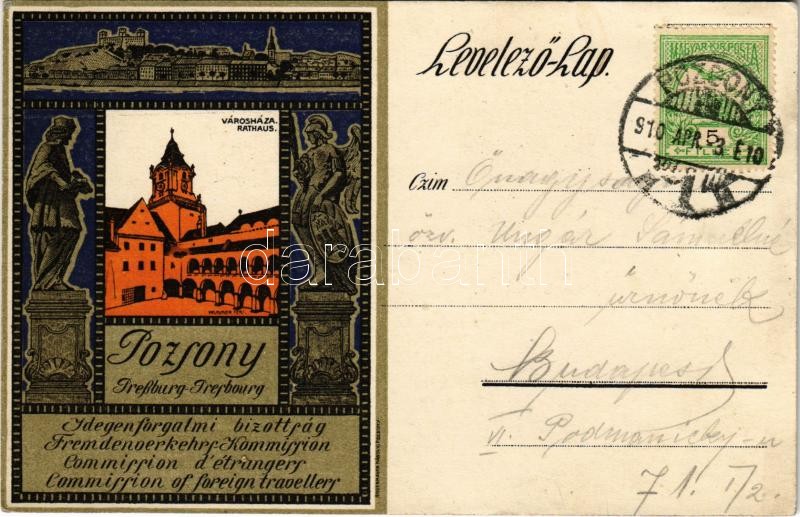 VÁROSHÁZA.
RATHAUS.
Pozsony
Preßburg-Presbourg
Idegenforgalmi bizottság
Fremdenverkehrs-Kommission
Commission d'étrangers
Commission of foreign travellers
Levelező-Lap.
MAGYAR KIR. POSTA
5
POZSONY
910 APR. 3 É10
Czim Őnagysága
özv. Ungár Samuelné
úrnőnek
Budapest
VI. Podmaniczky-u
71. I/2.
darabanth